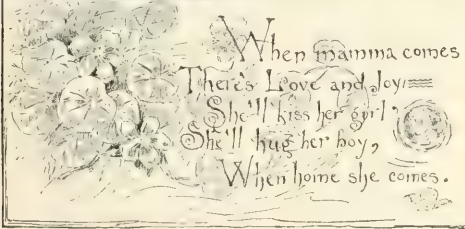 When mamma comes
There's Love and Joy,
She'll kiss her girl
She'll hug her boy,
When home she comes.